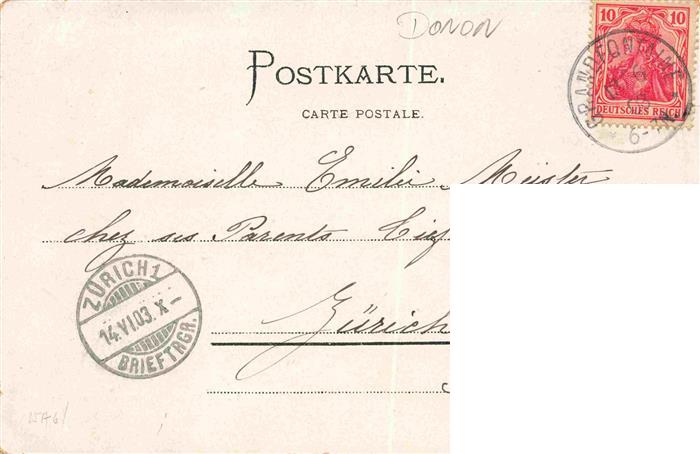 Donon
10 10
DEUTSCHES REICH
GRANDFONTAINE
POSTKARTE.
CARTE POSTALE.
Mademoiselle Emilie Meister
chez ses Parents
Zürich
ZÜRICH 1
14.VI.03. X–
BRIEFTRGR.